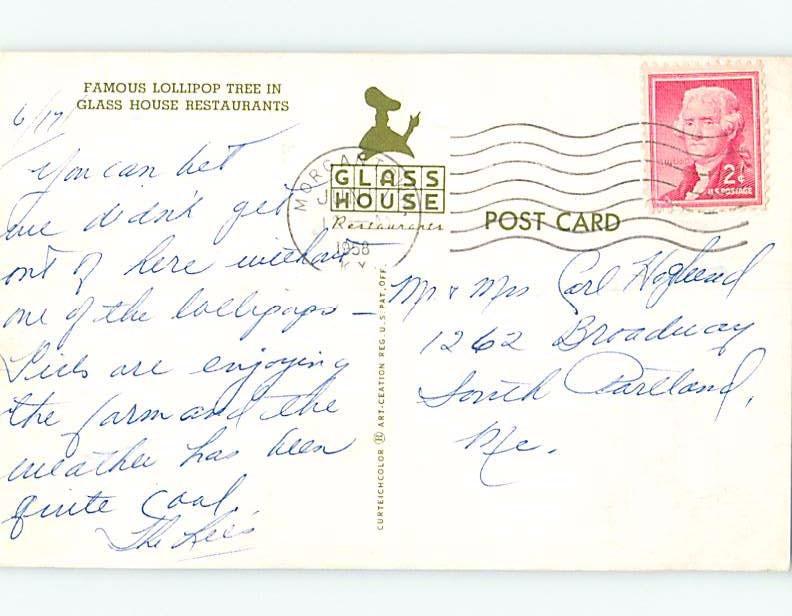 FAMOUS LOLLIPOP TREE IN
GLASS HOUSE RESTAURANTS
6/17
You can bet
we didn't get
out of here without
one of the lollipops —
are enjoying
the farm and the
weather has been
quite cool.
The Lee's
MORGAN
1958
KY.
GLASS
HOUSE
Restaurants
POST CARD
2¢
U.S. POSTAGE
CURTEICHCOLOR ® ART-CREATION REG. U.S. PAT. OFF.
Mr & Mrs Carl Hoglund
1262 Broadway
South Portland,
Me.